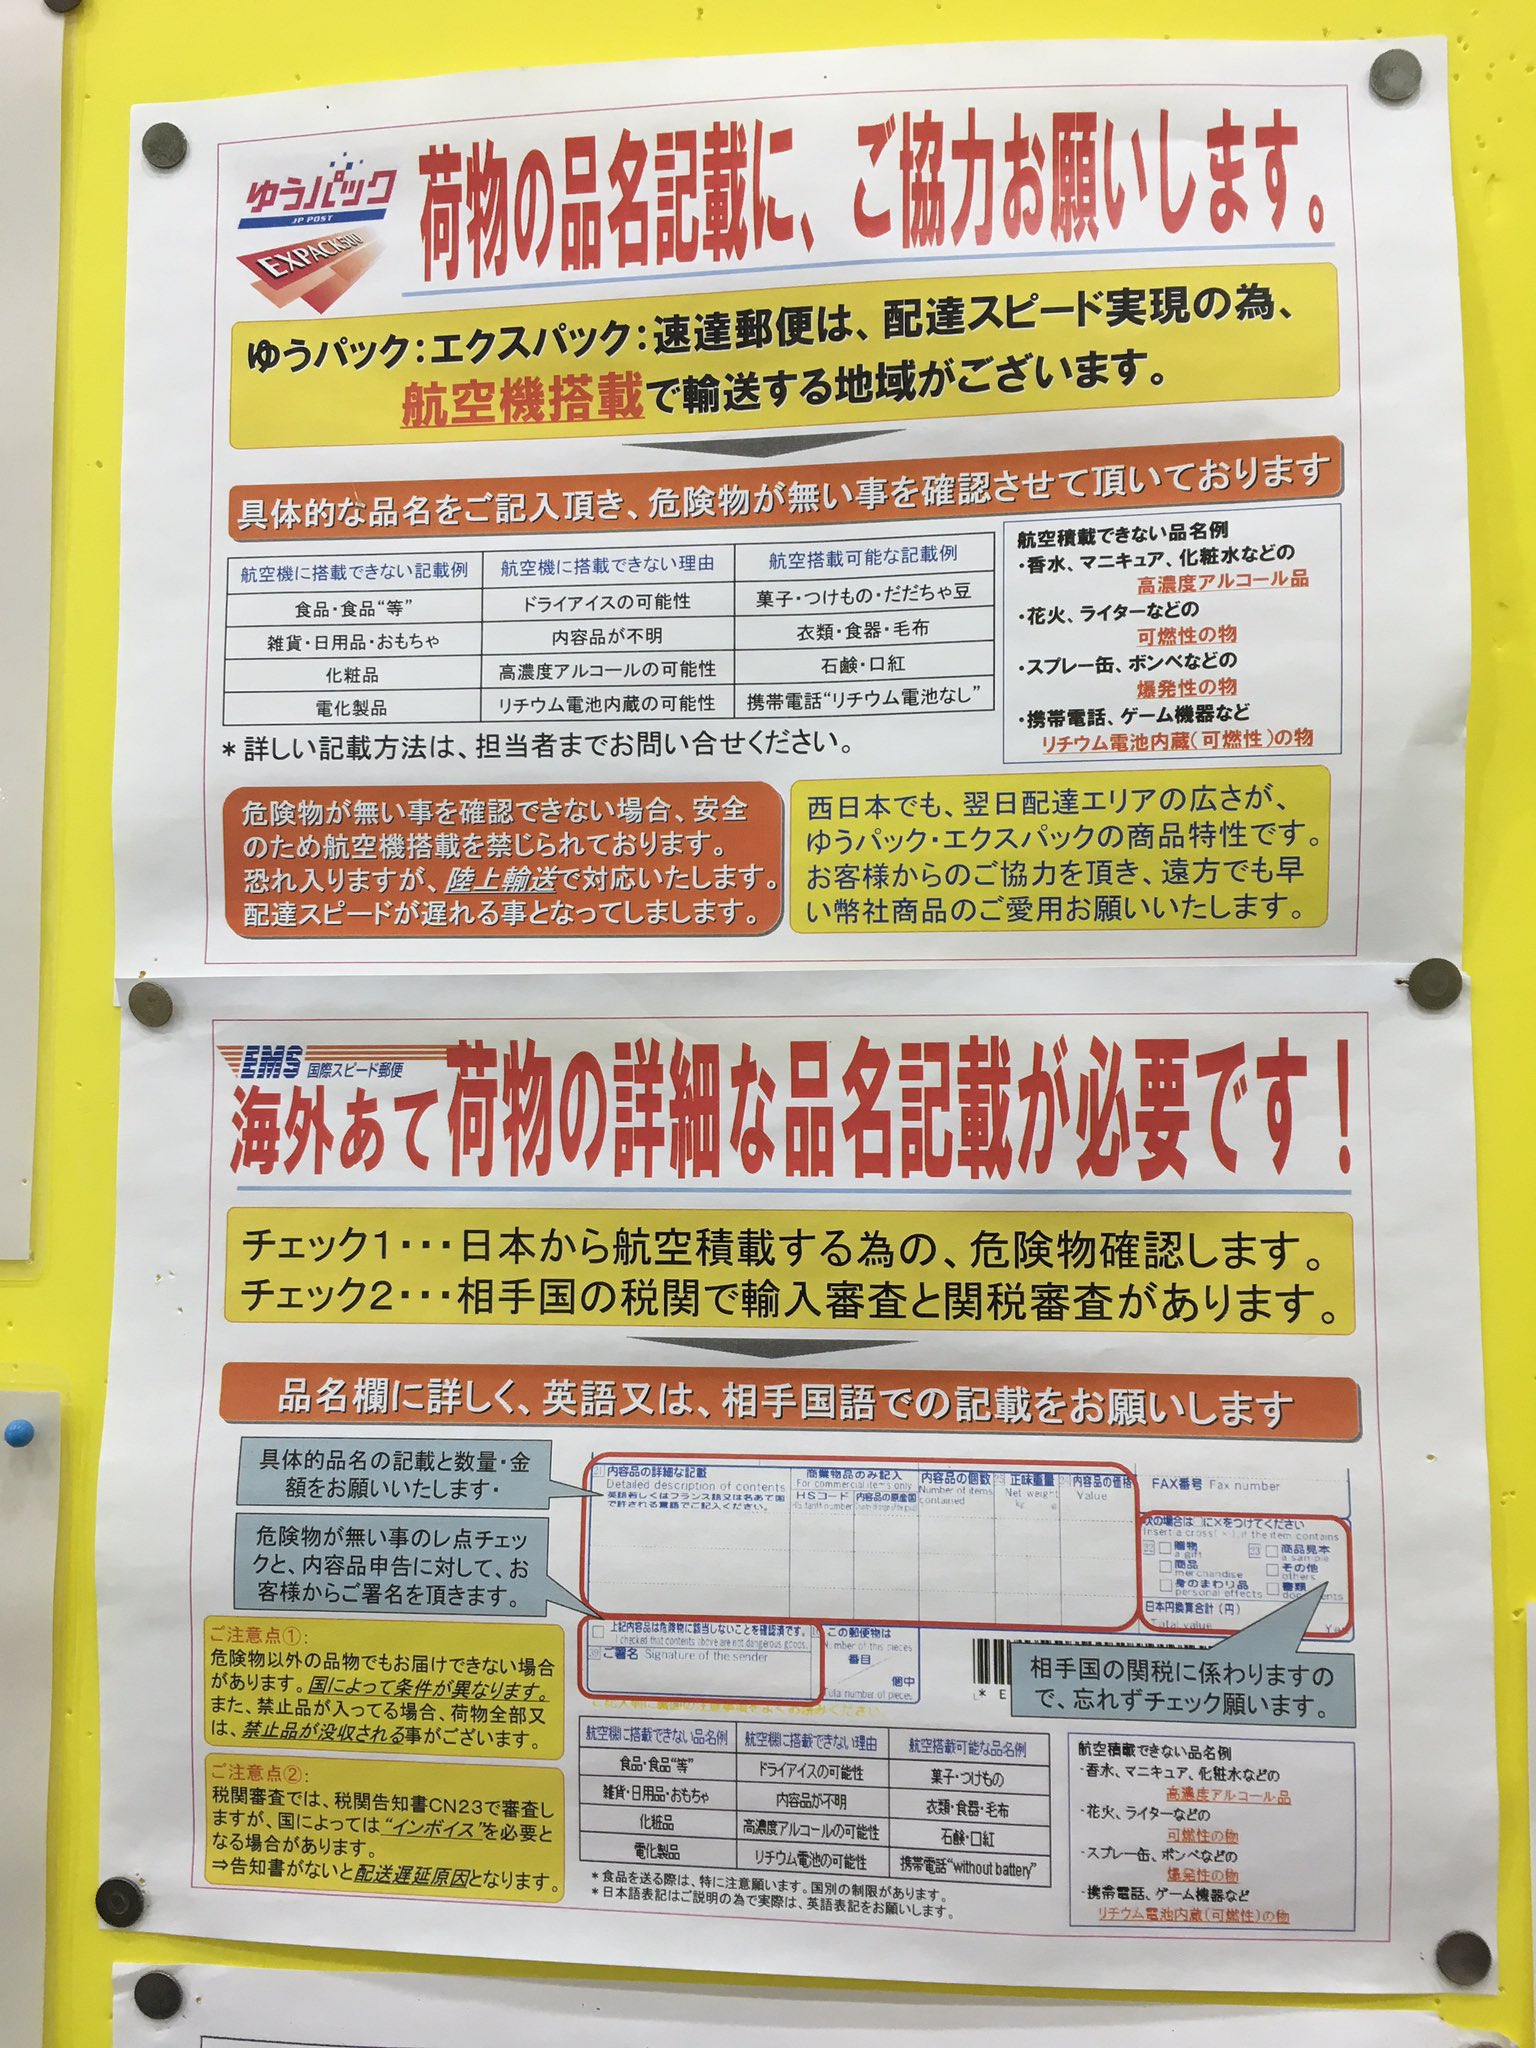 ゆうパック
JP POST
EXPACK500
荷物の品名記載に、ご協力お願いします。
ゆうパック:エクスパック:速達郵便は、配達スピード実現の為、
航空機搭載で輸送する地域がございます。
具体的な品名をご記入頂き、危険物が無い事を確認させて頂いております
航空機に搭載できない記載例 航空機に搭載できない理由 航空搭載可能な記載例
食品・食品“等” ドライアイスの可能性 菓子・つけもの・だだちゃ豆
雑貨・日用品・おもちゃ 内容品が不明 衣類・食器・毛布
化粧品 高濃度アルコールの可能性 石鹸・口紅
電化製品 リチウム電池内蔵の可能性 携帯電話“リチウム電池なし”
*詳しい記載方法は、担当者までお問い合せください。
航空積載できない品名例
・香水、マニキュア、化粧水などの
高濃度アルコール品
・花火、ライターなどの
可燃性の物
・スプレー缶、ボンベなどの
爆発性の物
・携帯電話、ゲーム機器など
リチウム電池内蔵(可燃性)の物
危険物が無い事を確認できない場合、安全
のため航空機搭載を禁じられております。
恐れ入りますが、陸上輸送で対応いたします。
配達スピードが遅れる事となってしまします。
西日本でも、翌日配達エリアの広さが、
ゆうパック・エクスパックの商品特性です。
お客様からのご協力を頂き、遠方でも早
い幣社商品のご愛用お願いいたします。
EMS 国際スピード郵便
海外あて荷物の詳細な品名記載が必要です!
チェック1・・・日本から航空積載する為の、危険物確認します。
チェック2・・・相手国の税関で輸入審査と関税審査があります。
品名欄に詳しく、英語又は、相手国語での記載をお願いします
具体的品名の記載と数量・金
額をお願いいたします・
危険物が無い事のレ点チェッ
クと、内容品申告に対して、お
客様からご署名を頂きます。
21 内容品の詳細な記載
Detailed description of contents
英語若しくはフランス語又は名あて国
で許される言語でご記入ください。
商業物品のみ記入
For commercial items only
HSコード 内容品の原産国
内容品の個数
Number of items
contained
正味重量
Net weight
kg g
内容品の価格
Value
FAX番号 Fax number
次の場合は□に×をつけてください
Insert a cross(×), if the item contains
22 贈物
a gift
商品
merchandise
身のまわり品
personal effects
23 商品見本
a sample
その他
others
書類
documents
日本円換算合計(円)
Total value
上記内容品は危険物に該当しないことを確認済です。
I checked that contents above are not dangerous goods.
ご署名 Signature of the sender
この郵便物は
Number of this pieces
番目
個中
Total number of pieces
* E
相手国の関税に係わりますの
で、忘れずチェック願います。
ご注意点①:
危険物以外の品物でもお届けできない場合
があります。国によって条件が異なります。
また、禁止品が入ってる場合、荷物全部又
は、禁止品が没収される事がございます。
ご注意点②:
税関審査では、税関告知書CN23で審査し
ますが、国によっては“インボイス”を必要と
なる場合があります。
⇒告知書がないと配送遅延原因となります。
航空機に搭載できない品名例 航空機に搭載できない理由 航空搭載可能な品名例
食品・食品“等” ドライアイスの可能性 菓子・つけもの
雑貨・日用品・おもちゃ 内容品が不明 衣類・食器・毛布
化粧品 高濃度アルコールの可能性 石鹸・口紅
電化製品 リチウム電池の可能性 携帯電話“without battery”
*食品を送る際は、特に注意願います。国別の制限があります。
*日本語表記はご説明の為で実際は、英語表記をお願いします。
航空積載できない品名例
・香水、マニキュア、化粧水などの
高濃度アルコール品
・花火、ライターなどの
可燃性の物
・スプレー缶、ボンベなどの
爆発性の物
・携帯電話、ゲーム機器など
リチウム電池内蔵(可燃性)の物